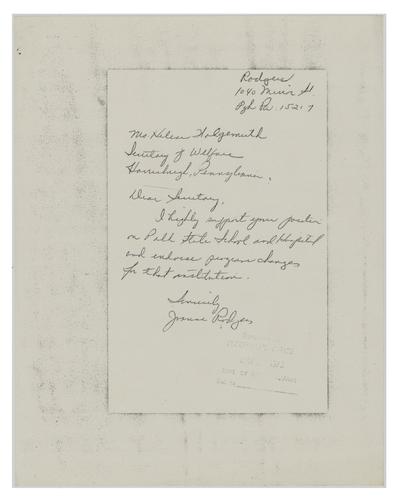 Rodgers
1040 Murin St
Pgh Pa. 15217
Ms. Helene Wohlgemuth
Secretary of Welfare
Harrisburg, Pennsylvania.
Dear Secretary,
I highly support your position
on Polk State School and Hospital
and endorse program changes
for that institution.
Sincerely
Joanne Rodgers